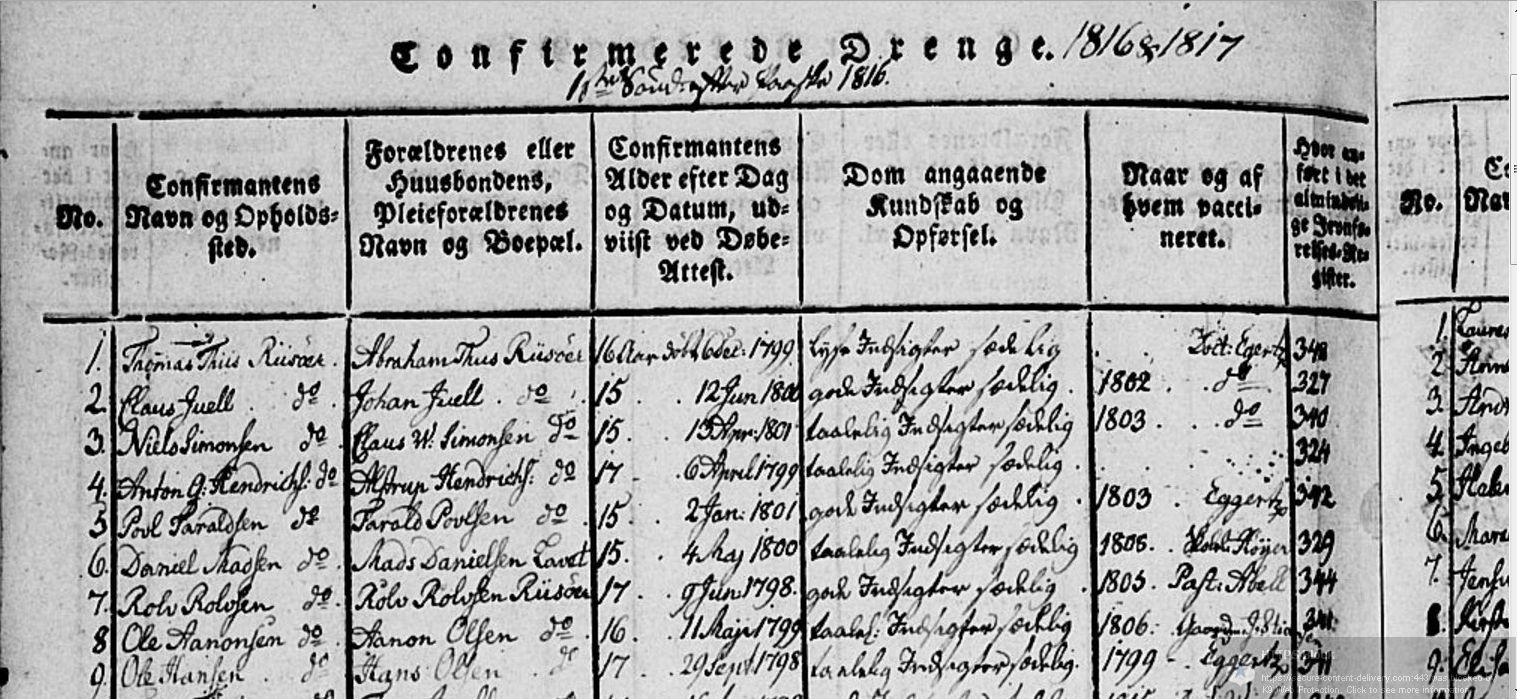 Confirmerede Drenge. 1816 & 1817
1ste Sønd: efter Paaske 1816.
No.
Confirmantens Navn og Opholds-
sted.
Forældrenes eller
Huusbondens,
Pleieforældrenes
Navn og Boepæl.
Confirmantens
Alder efter Dag
og Datum, ud-
viist ved Døbe-
Attest.
Dom angaaende
Kundskab og
Opførsel.
Naar og af
hvem vacci-
neret.
Hvor an-
ført i det
almindeli-
ge Jevnfø-
relses-Re-
gister.
No.
1. Thomas Thus Riisöer. Abraham Thus Riisöer 16 Aar döbt 6 Dec: 1799 lyse Indsigter sædelig Doct: Egertz 348
2. Claus Juell do Johan Juell do 15 12 Jun 1800 gode Indsigter sædelig 1802 do 327
3. Niels Simonsen do Claus W. Simonsen do 15. 13 Apr: 1801 taalelig Indsigter sædelig 1803 do 340
4. Anton G: Hendrichs: do Alstrup Hendrichs: do 17 6 April 1799 taalelig Indsigter sædelig 324
5 Povl Taraldsen do Tarald Povlsen do 15. 2 Jan: 1801 gode Indsigter sædelig 1803 Eggertz 342
6. Daniel Madsen do Mads Danielsen 15. 4 Maj 1800 taalelig Indsigter sædelig 1808. Höyer 329
7. Rolv Rolvsen do. Rolv Rolvsen Riisöer 17 9 Jun 1798. gode Indsigter sædelig 1805 Past: Abell 344
8 Ole Aanonsen do Aanon Olsen do 16. 11 Maji 1799 taalel: Indsigter sædelig 1806:
9. Ole Hansen do Hans Olsen do 17 29 Sept 1798 taalelig Indsigter sædelig. 1799 - Eggertz
1.
2.
3.
4.
5.
6.
7.
8.
9.
https://secure-content-delivery.com:443 was blocked by
K9 Web Protection. Click to see more information.